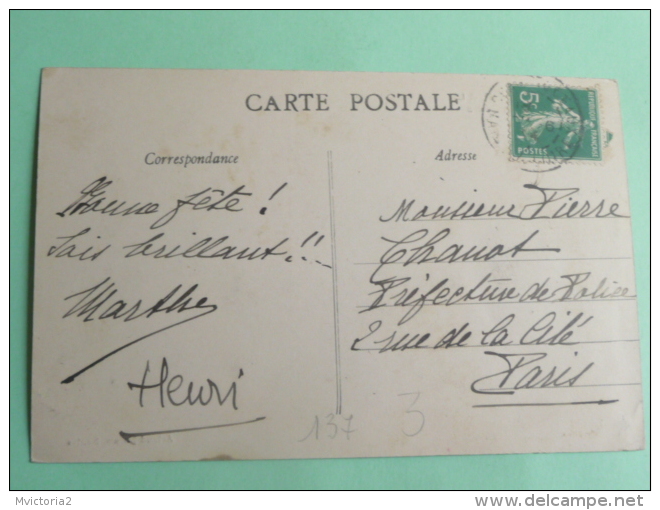 CARTE POSTALE
Correspondance
Adresse
5c
REPUBLIQUE FRANÇAISE
POSTES
Bonne fête !
Sois brillant !!
Marthe
Henri
Monsieur Pierre
Chanot
Préfecture de Police
2 rue de la Cité
Paris
137
3
Mvictoria2
delcampe.net